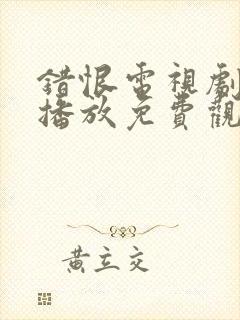 錯恨電視劇
播放免費觀
黃立交